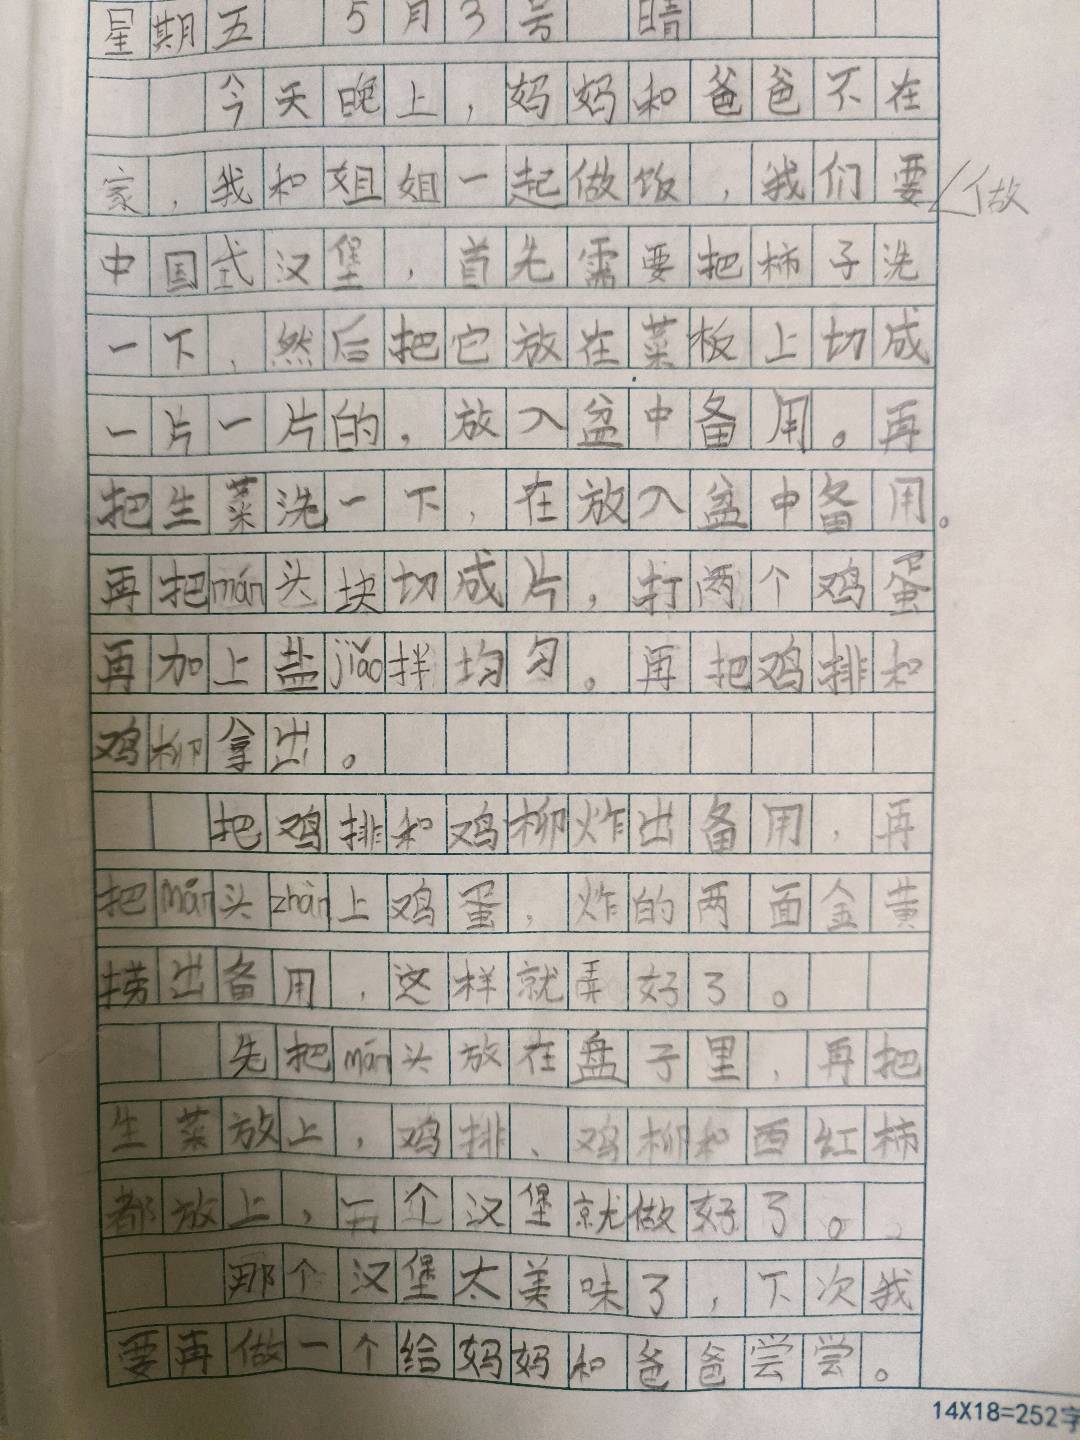 星期五 5月3号 晴
今天晚上，妈妈和爸爸不在
家，我和姐姐一起做饭，我们要做
中国式汉堡，首先需要把柿子洗
一下，然后把它放在菜板上切成
一片一片的，放入盆中备用。再
把生菜洗一下，在放入盆中备用。
再把mán头块切成片，打两个鸡蛋
再加上盐jiāo拌均匀。再把鸡排和
鸡柳拿出。
把鸡排和鸡柳炸出备用，再
把mán头zhàn上鸡蛋，炸的两面金黄
捞出备用，这样就弄好了。
先把mán头放在盘子里，再把
生菜放上，鸡排、鸡柳和西红柿
都放上，个汉堡就做好了。
那个汉堡太美味了，下次我
要再做一个给妈妈和爸爸尝尝。
14X18=252字